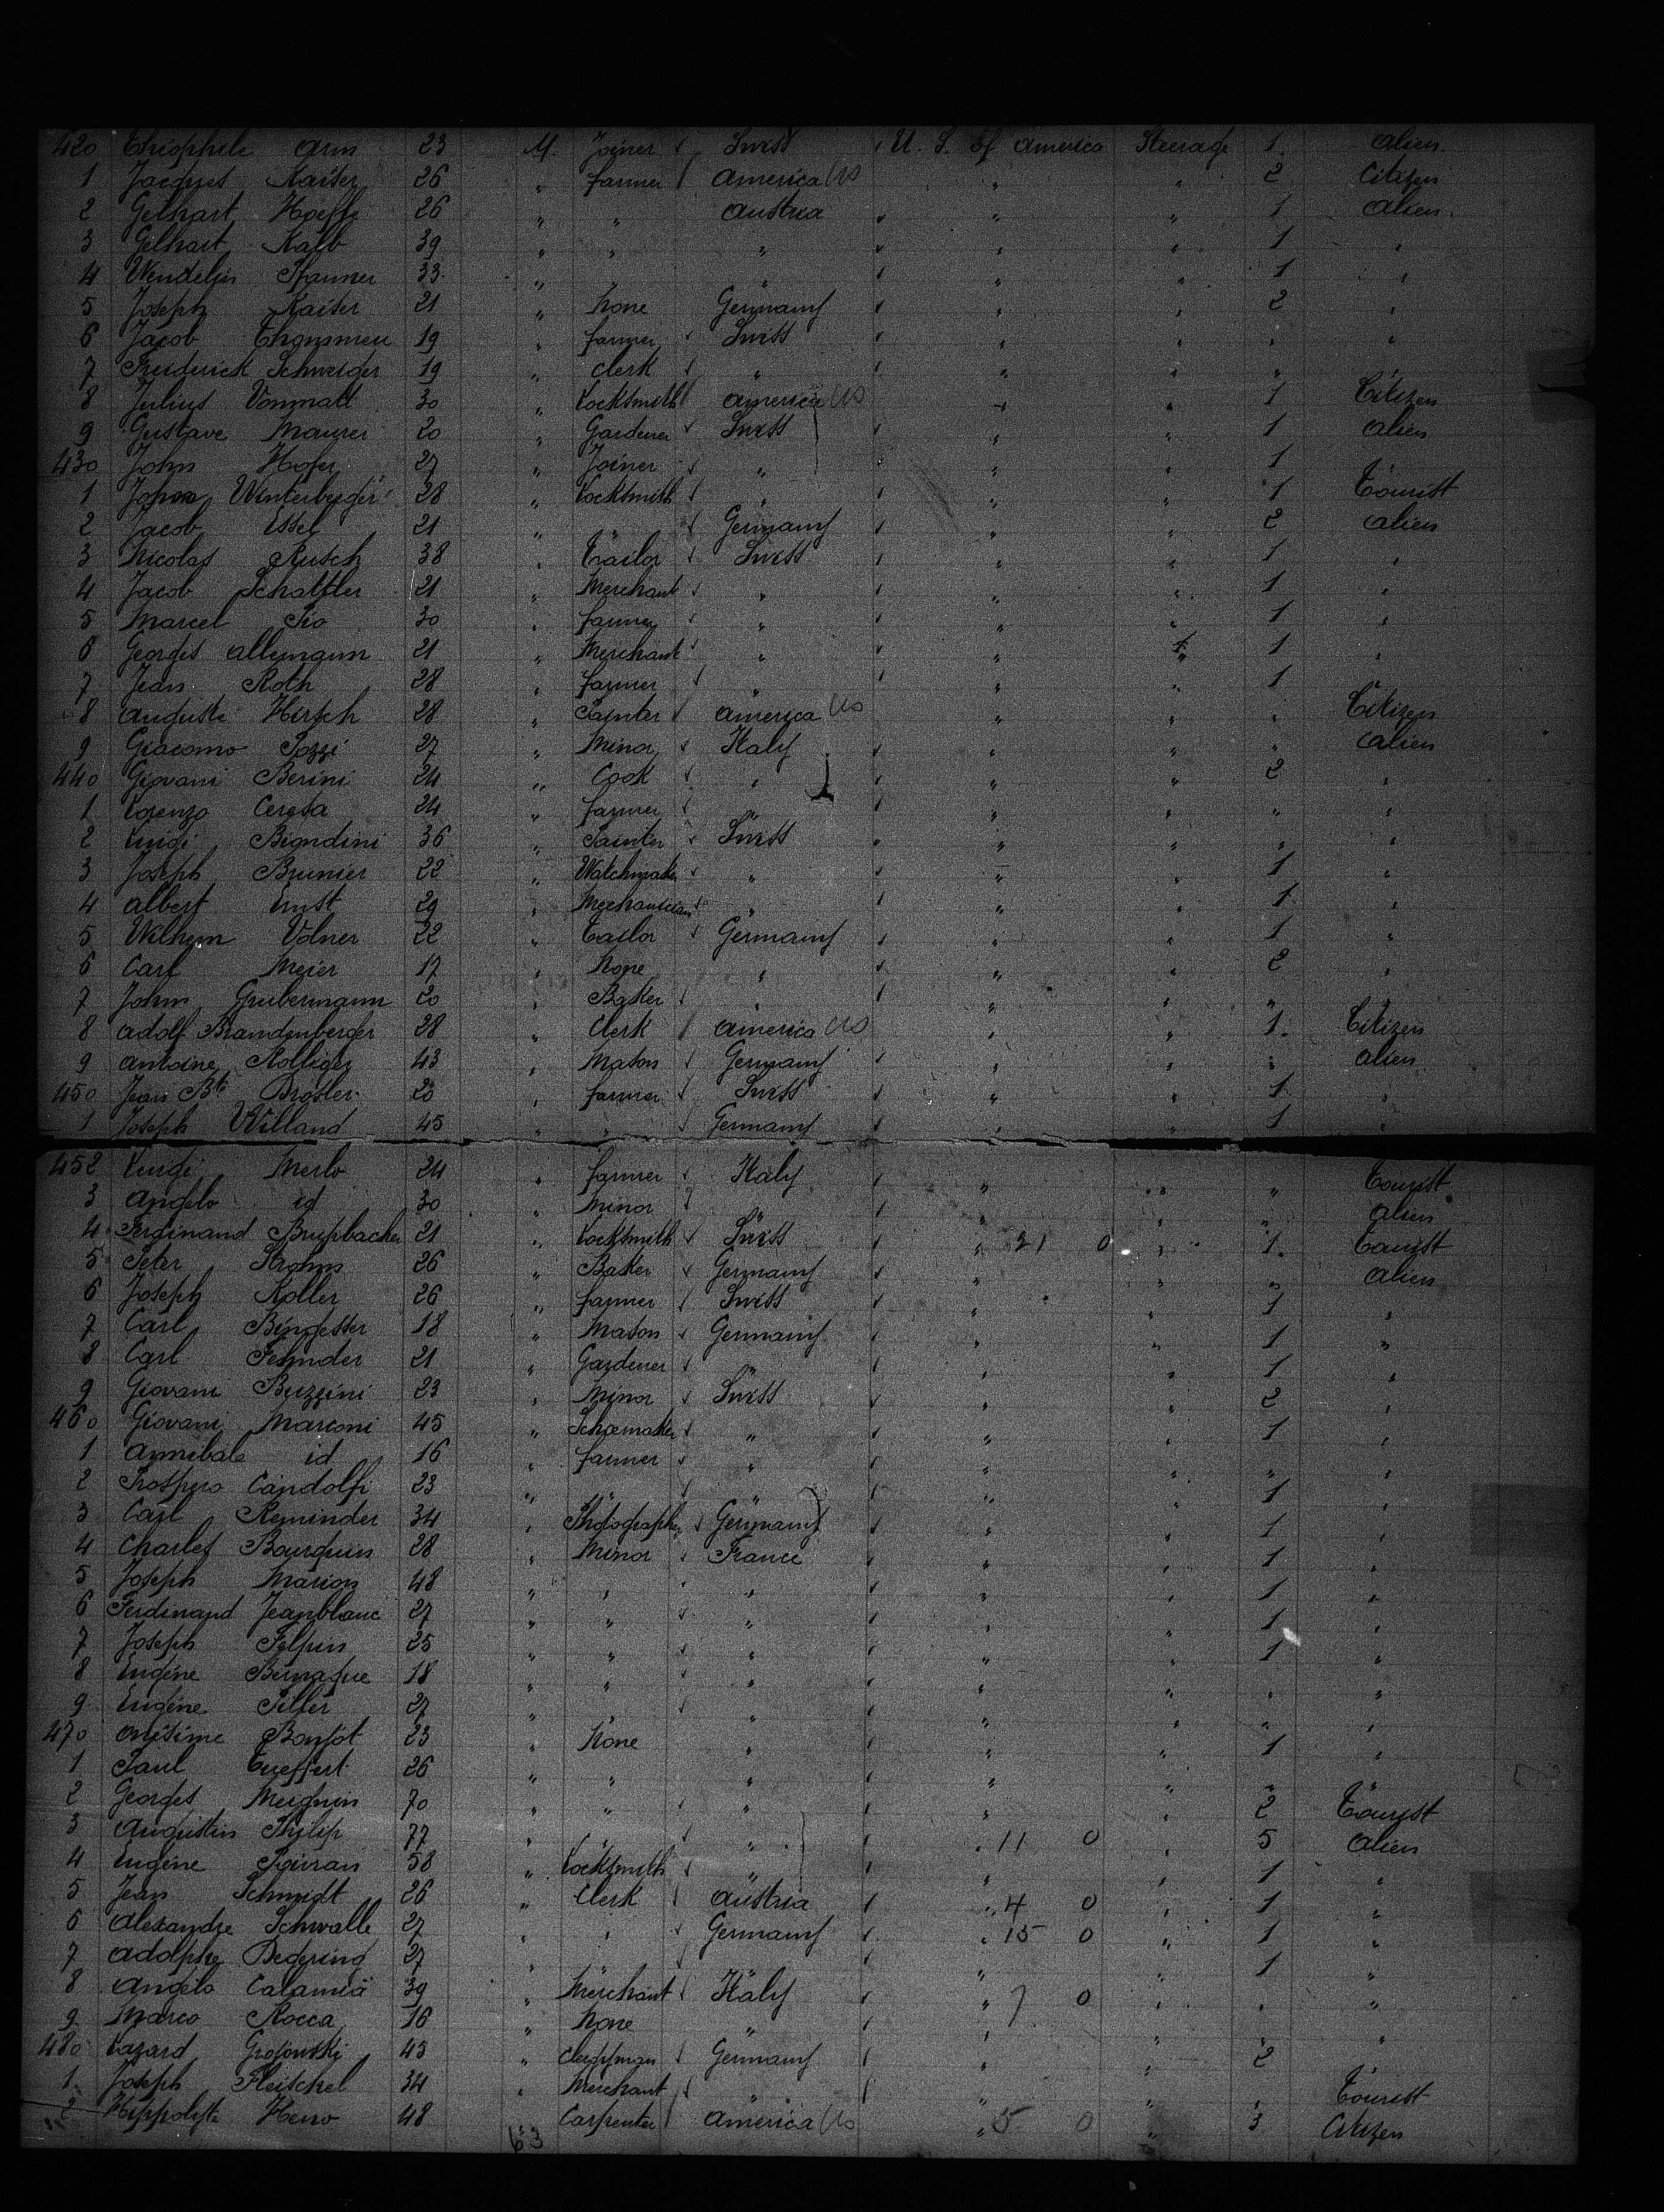 420 Théophile Arm 23 M. Joiner Swiss U. S. of America Steerage 1. Alien.
1 Jacques Kaiser 26 " farmer America US " " 2 Citizen
2 Gebhart Hoefle 26 " " Austria " " 1 Alien.
3 Gebhart Kalb 39 " " " " " 1 "
4 Wendelin Pfanner 33 " " " 1 "
5 Joseph Kaiser 21 " None Germany " " 2 "
6 Jacob Thommen 19 " farmer Swiss " " " "
7 Frederick Schweizer 19 " Clerk " " " " "
8 Julius Vonmatt 30 " Locksmith America US " " 1 Citizen
9 Gustave Maurer 20 " Gardener Swiss " " 1 Alien
430 John Hofer 27 " Joiner " " " 1
1 Winterberger 28 " Locksmith " " " 1 Tourist
2 Jacob Essel 21 " " Germany " " 2 Alien
3 Nicolas Rusch 38 " Tailor Swiss " " 1 "
4 Jacob 21 " Merchant " " " 1 "
5 Marcel Pio 30 " farmer " " " 1 "
6 Georges Allemann 21 " Merchant " " " 1 "
7 Jean Roth 28 " farmer " " " 1
8 Auguste Hirsch 28 " Painter America US " " " Citizen
9 Giacomo Pozzi 27 " Minor Italy " " " Alien
440 Giovani Berini 24 " Cook " " " 2 "
1 Lorenzo Ceresa 24 " farmer " " " " "
2 Luigi Biondini 36 " Painter Swiss " " " "
3 Joseph Brunier 22 " Watchmaker " " " 1 "
4 Albert Ernst 29 " Mechanician " " " 1 "
5 Wilhem Volner 22 " Tailor Germany " " 1 "
6 Carl Meier 17 " None " " " 2 "
7 John Grubermann 20 " Baker " " " " "
8 Adolf Brandenberger 28 " Clerk America US " " 1. Citizen
9 Antoine Kolliger 43 " Mason Germany " " " Alien
450 Jean Bte 20 " farmer Swiss " " 1 "
1 Joseph Willand 45 " " Germany " " 1 "
452 Luigi Merlo 24 " farmer Italy " " " Tourist
3 Angelo id 30 " Minor " " " " Alien
4 Ferdinand Bruppacher 21 " Locksmith Swiss " 21 0 " 1. Tourist
5 Peter Strohm 26 " Baker Germany " " " Alien
6 Joseph Koller 26 " farmer Swiss " " 1 "
7 Carl 18 " Mason Germany " " 1 "
8 Carl Fehnder 21 " Gardener " " " 1 "
9 Giovani Buzzini 23 " Minor Swiss " " 2 "
460 Giovani Marconi 45 " Schoemaker " " " 1 "
1 Annibale id 16 " farmer " " " " "
2 Prospero Candolfi 23 " " " " " 1 "
3 Carl Reminder 34 " Photographer Germany " " 1 "
4 Charles Bourquin 28 " Minor France " " 1 "
5 Joseph Marion 48 " " " " " 1 "
6 Ferdinand Jeanblanc 27 " " " " " 1 "
7 Joseph Felpin 25 " " " " " 1 "
8 Eugène 18 " " " " " " "
9 Eugène 27 " " " " " " "
470 Onésime 23 " None " " " 1 "
1 Paul Tueffert 26 " " " " " " "
2 Georges Meignin 70 " " " " " 2 Tourist
3 Augustin Philip 77 " " " 11 0 " 5 Alien
4 Eugène 58 " Locksmith " " " 1 "
5 Jean Schmidt 26 " Clerk Austria " 4 0 " 1 "
6 Alexandre Schwalle 27 " " Germany " 15 0 " 1 "
7 Adolphe 27 " " " " " 1 "
8 Angelo Calamia 39 " Merchant Italy " 7 0 " " "
9 Marco Rocca 16 " None " " " " "
480 Lazard 45 " Germany " " 2
1 Joseph Fleischel 34 " Merchant " " " " Tourist
2 Hippolyte 48 Carpenter America US " 5 0 " 3 Citizen
63